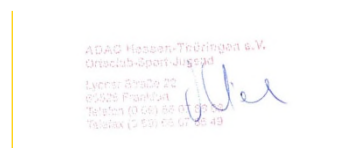 ADAC Hessen-Thüringen e.V.
Ortsclub-Sport-Jugend
Lyoner Straße 22
60528 Frankfurt
Telefon (0 69) 66 07
Telefax (0 69) 66 07 49